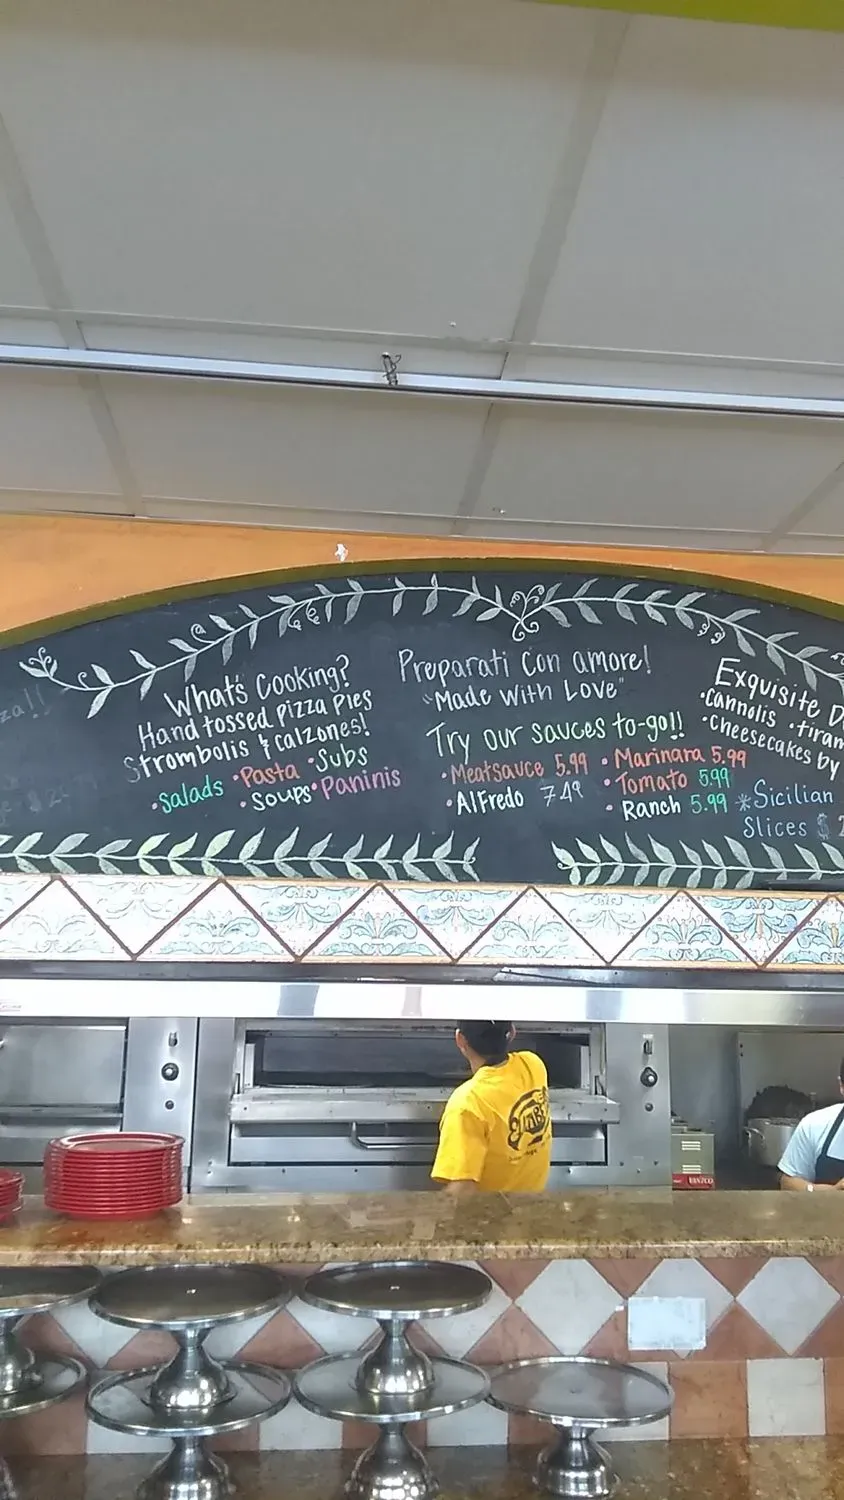 What's Cooking?
Hand tossed Pizza Pies
Strombolis & Calzones!
•Salads •Pasta •Subs
•Soups •Paninis
Preparati Con amore!
"Made With Love"
Try our sauces to-go!!
•Meatsauce 5.99 •Marinara 5.99
•Alfredo 7.49 •Tomato 5.99
•Ranch 5.99
Exquisite D
•Cannolis •Tiram
•Cheesecakes by
*Sicilian
Slices $2